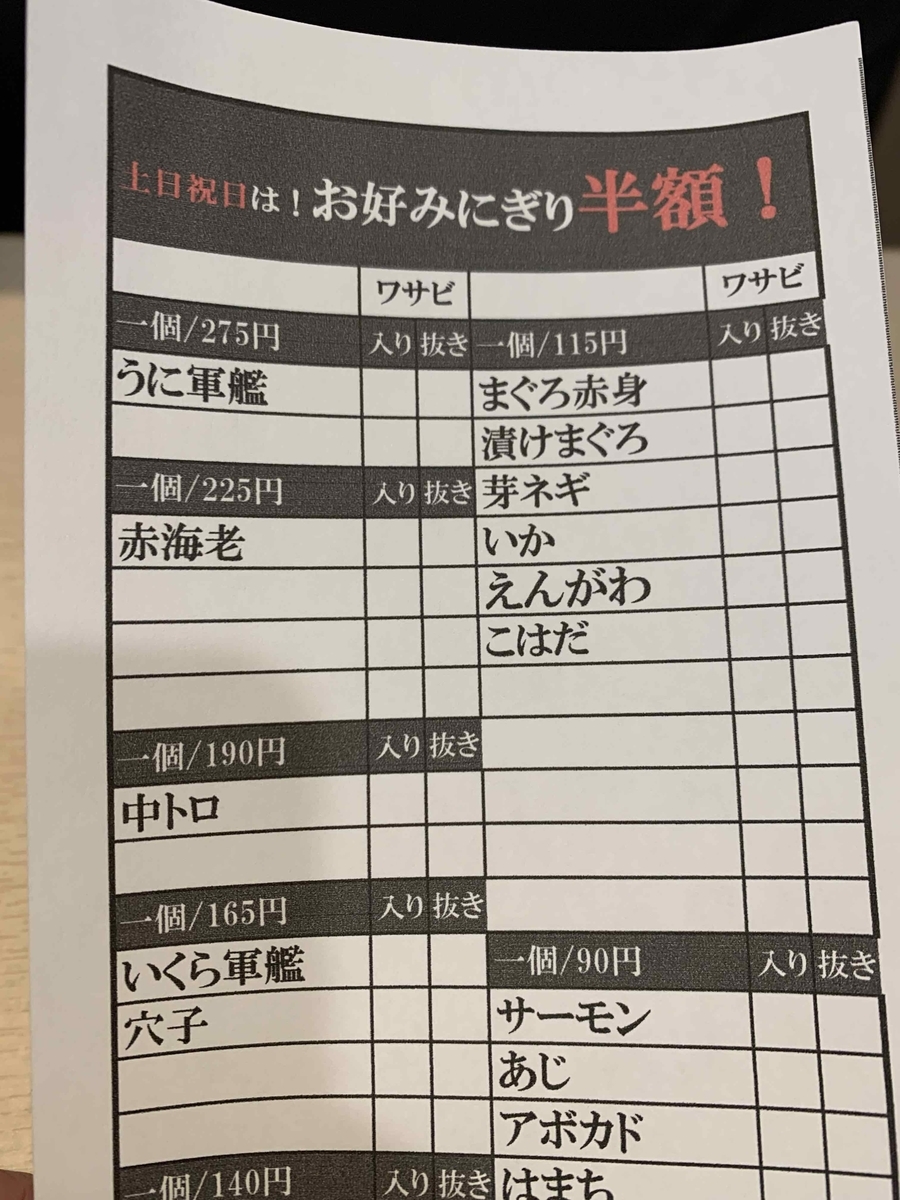 土日祝日は！お好みにぎり半額！
ワサビ
一個/275円 入り 抜き
うに軍艦
一個/225円 入り 抜き
赤海老
一個/190円 入り 抜き
中トロ
一個/165円 入り 抜き
いくら軍艦
穴子
一個/140円 入り 抜き
ワサビ
一個/115円 入り 抜き
まぐろ赤身
漬けまぐろ
芽ネギ
いか
えんがわ
こはだ
一個/90円 入り 抜き
サーモン
あじ
アボカド
はまち